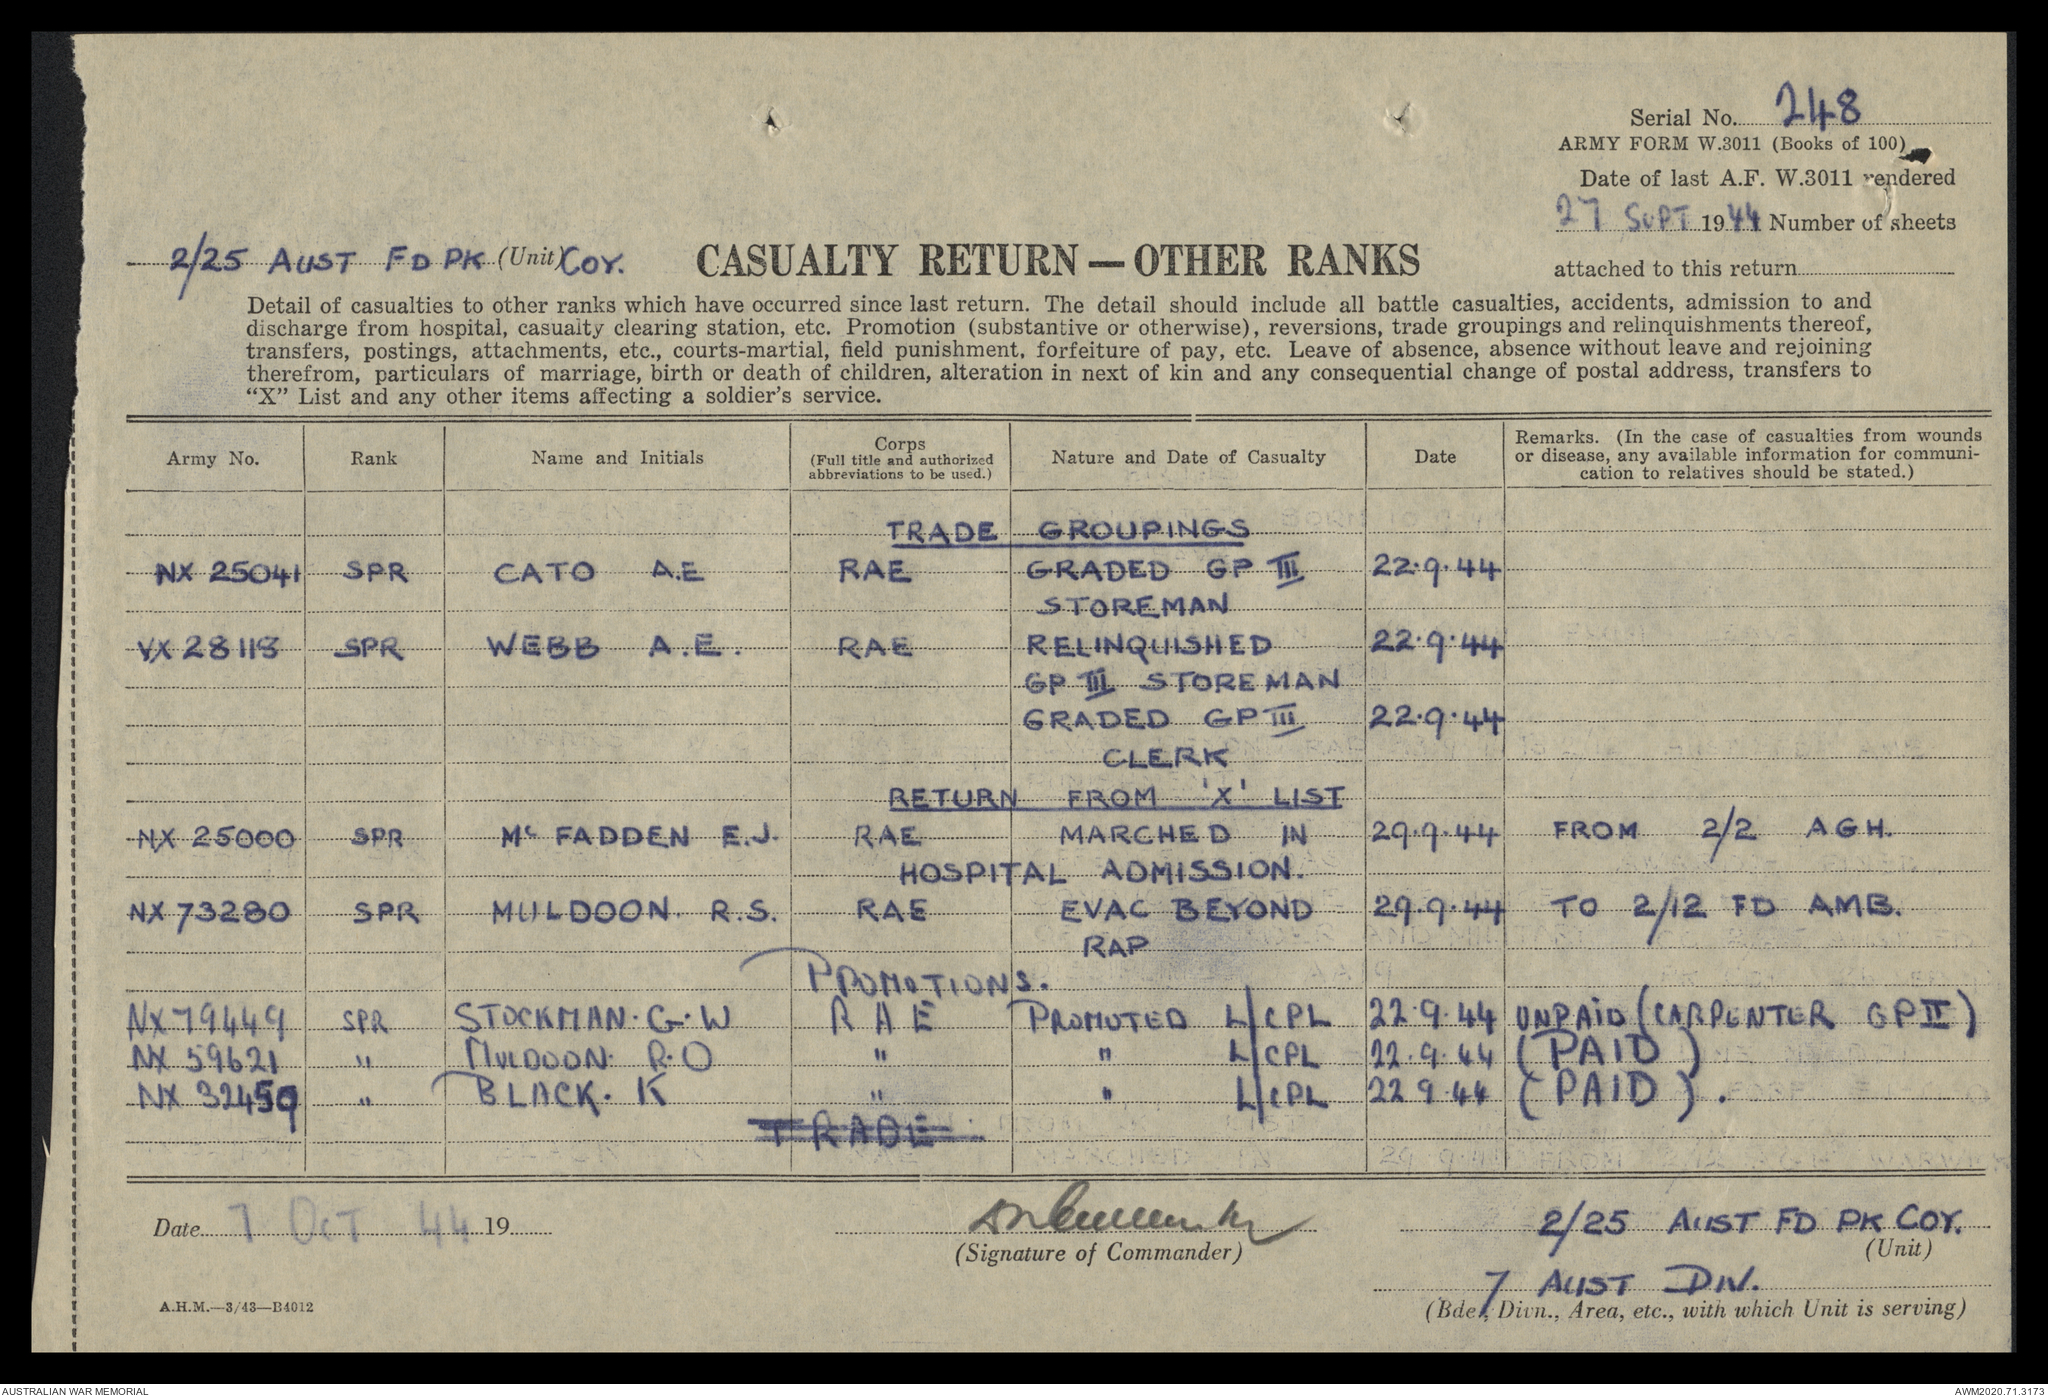 Serial No. 248
ARMY FORM W.3011 (Books of 100)
Date of last A.F. W.3011 rendered
27 SEPT 1944 Number of sheets
attached to this return
2/25 AUST FD PK (Unit) COY.
CASUALTY RETURN — OTHER RANKS
Detail of casualties to other ranks which have occurred since last return. The detail should include all battle casualties, accidents, admission to and
discharge from hospital, casualty clearing station, etc. Promotion (substantive or otherwise), reversions, trade groupings and relinquishments thereof,
transfers, postings, attachments, etc., courts-martial, field punishment, forfeiture of pay, etc. Leave of absence, absence without leave and rejoining
therefrom, particulars of marriage, birth or death of children, alteration in next of kin and any consequential change of postal address, transfers to
“X” List and any other items affecting a soldier's service.
Army No. Rank Name and Initials Corps (Full title and authorized abbreviations to be used.) Nature and Date of Casualty Date Remarks. (In the case of casualties from wounds or disease, any available information for communi-cation to relatives should be stated.)
TRADE GROUPINGS
NX 25041 SPR CATO A.E RAE GRADED GP III 22.9.44
STOREMAN
VX 28118 SPR WEBB A.E. RAE RELINQUISHED 22.9.44
GP III STOREMAN
GRADED GP III 22.9.44
CLERK
RETURN FROM 'X' LIST
NX 25000 SPR Mc FADDEN E.J. RAE MARCHED IN 29.9.44 FROM 2/2 AGH.
HOSPITAL ADMISSION.
NX 73280 SPR MULDOON. R.S. RAE EVAC BEYOND 29.9.44 TO 2/12 FD AMB.
RAP
PROMOTIONS.
NX 79449 SPR STOCKMAN. G.W RAE PROMOTED L/CPL 22.9.44 UNPAID (CARPENTER GP II)
NX 59621 " MULDOON. R.O " " L/CPL 22.9.44 (PAID)
NX 32459 " BLACK. K " " L/CPL 22 9.44 (PAID).
TRADE
Date 7 OCT 44 19
(Signature of Commander)
2/25 AUST FD PK COY.
(Unit)
7 AUST DIV.
(Bde, Divn., Area, etc., with which Unit is serving)
A.H.M.—3/43—B4012
AUSTRALIAN WAR MEMORIAL
AWM2020.71.3173